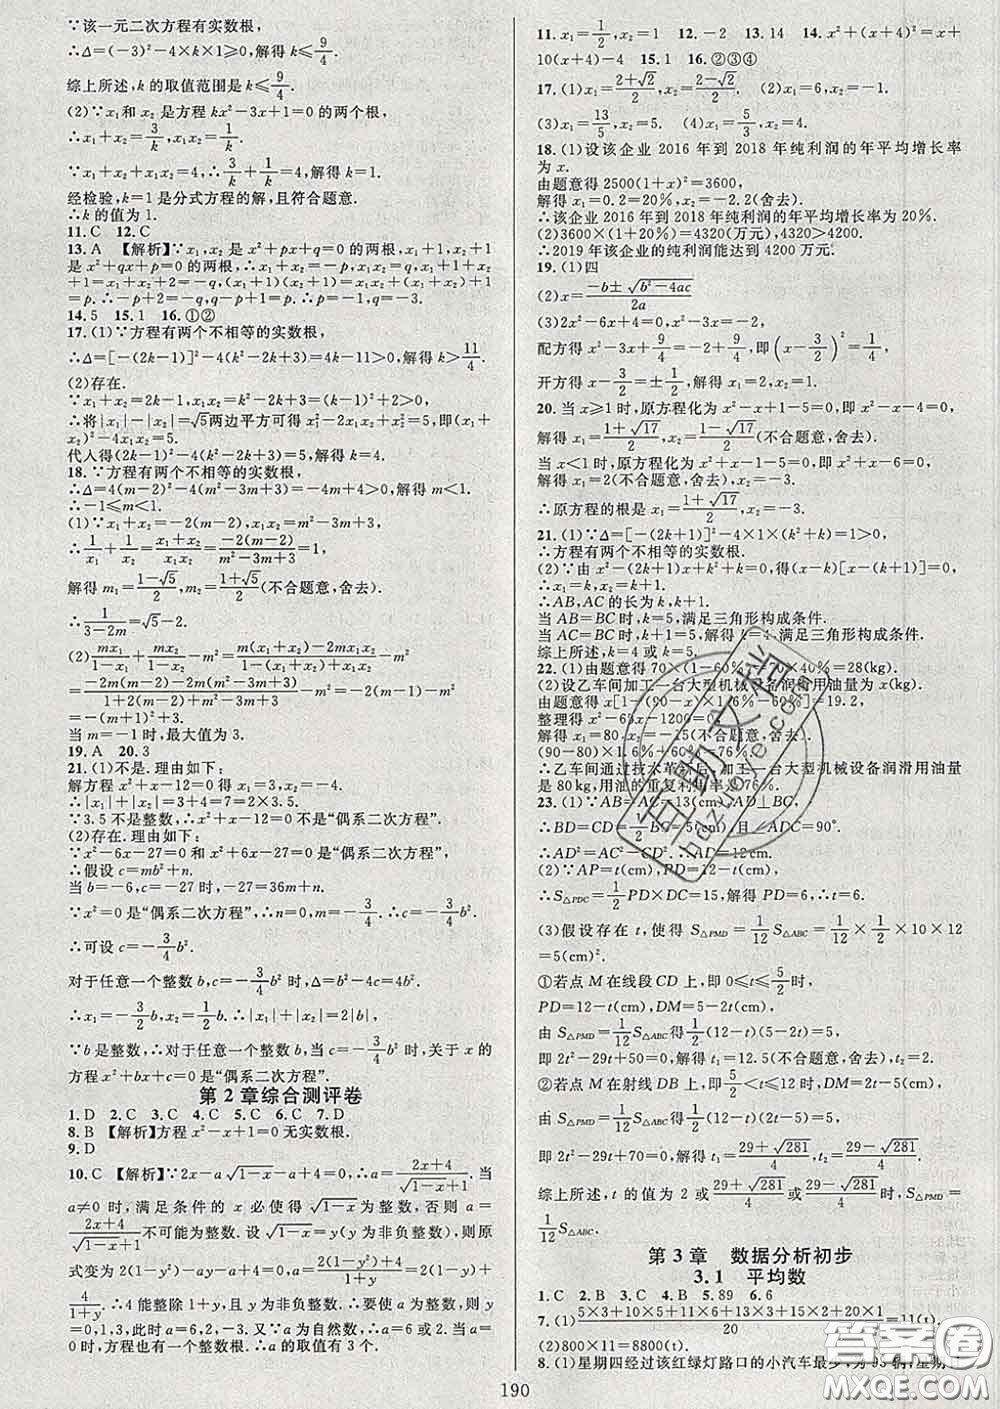 ∵该一元二次方程有实数根,
∴Δ=(-3)²-4×k×1≥0,解得k≤9/4.
综上所述,k的取值范围是k≤9/4.
(2)∵x₁和x₂是方程kx²-3x+1=0的两个根,
∴x₁+x₂=3/k,x₁x₂=1/k.
∵x₁+x₂+x₁x₂=4,∴3/k+1/k=4,解得k=1.
经检验,k=1是分式方程的解,且符合题意.
∴k的值为1.
11.C 12.C
13.A 【解析】∵x₁,x₂是x²+px+q=0的两根,x₁+1,x₂+1
是x²+qx+p=0的两根,∴x₁+x₂=-p,x₁x₂=q,(x₁+1)+
(x₂+1)=-p+2=-q,(x₁+1)(x₂+1)=x₁x₂+x₁+x₂+1
=p.∴-p+q+1=p.∴p=-1,q=-3.
14.5 15.1 16.①②
17.(1)∵方程有两个不相等的实数根,
∴Δ=[-(2k-1)]²-4(k²-2k+3)=4k-11>0,解得k>11/4.
(2)存在.
∵x₁+x₂=2k-1,x₁x₂=k²-2k+3=(k-1)²+2>0,
∴将|x₁|-|x₂|=√5两边平方可得x₁²-2x₁x₂+x₂²=5,即(x₁+
x₂)²-4x₁x₂=5.
代入得(2k-1)²-4(k²-2k+3)=5,解得k=4.
18.∵方程有两个不相等的实数根,
∴Δ=4(m-2)²-4(m²-3m+3)=-4m+4>0.解得m<1.
∴-1≤m<1.
(1)∵x₁+x₂=-2(m-2),x₁x₂=m²-3m+3,
∴1/x₁+1/x₂=(x₁+x₂)/(x₁x₂)=-2(m-2)/(m²-3m+3)=1.
解得m₁=(1-√5)/2,m₂=(1+√5)/2(不合题意,舍去).
∴1/(3-2m)=√5-2.
(2)mx₁/(1-x₁)+mx₂/(1-x₂)-m²=[m(x₁+x₂)-2mx₁x₂]/(1-x₁-x₂+x₁x₂)-m²
=[-2m(m-2)-2m(m²-3m+3)]/(1+2m-4+m²-3m+3)-m²=-2(m-1)-m²
=-(m+1)²+3.
当m=-1时,最大值为3.
19.A 20.3
21.(1)不是.理由如下:
解方程x²+x-12=0得x₁=3,x₂=-4.
∴|x₁|+|x₂|=3+4=7=2×3.5.
∵3.5不是整数,∴x²+x-12=0不是“偶系二次方程”.
(2)存在.理由如下:
∵x²-6x-27=0和x²+6x-27=0是“偶系二次方程”,
∴假设c=mb²+n.
当b=-6,c=-27时,-27=36m+n.
∵x²=0是“偶系二次方程”,∴n=0,m=-3/4.∴c=-3/4b².
∴可设c=-3/4b².
对于任意一个整数b,c=-3/4b²时,Δ=b²-4c=4b².
∴x₁=-3/2b,x₂=1/2b.∴|x₁|+|x₂|=2|b|,
∵b是整数,∴对于任意一个整数b,当c=-3/4b²时,关于x的
方程x²+bx+c=0是“偶系二次方程”.
第2章综合测评卷
1.D 2.C 3.C 4.C 5.C 6.C 7.D
8.B 【解析】方程x²-x+1=0无实数根.
9.D
10.C 【解析】∵2x-a√(1-x)-a+4=0,∴a=(2x+4)/(√(1-x)+1).当
a≠0时,满足条件的x必使得√(1-x)为整数,否则a=
(2x+4)/(√(1-x)+1)不可能为整数.设√(1-x)=y(y为非负整数),则原
式变为2(1-y²)-ay-a+4=0.∴a=[2(1-y²)+4]/(1+y)=2(1-y)+
4/(1+y).∴4能整除1+y.∴要使a为整数,y为非负整数,则y=
0,1,3,此时a=6,2,-3.又∵a为自然数,∴a=6或2.当a=0
时,方程也有一个整数根.∴a的取值有3个.
11.x₁=1/2,x₂=1 12.-2 13.7 14.x²+(x+4)²=
10(x+4)-4 15.1 16.②③④
17.(1)x₁=(2+√2)/2,x₂=(2-√2)/2. (2)x₁=6,x₂=-1.
(3)x₁=13/5,x₂=5. (4)x₁=5/3,x₂=4.
18.(1)设该企业2016年到2018年纯利润的年平均增长率
为x.
由题意得2500(1+x)²=3600,
解得x₁=0.2=20%,x₂=-2.2(舍去).
∴该企业2016年到2018年纯利润的年平均增长率为20%.
(2)3600×(1+20%)=4320(万元),4320>4200.
∴2019年该企业的纯利润能达到4200万元.
19.(1)四
(2)x=(-b±√(b²-4ac))/2a
(3)2x²-6x+4=0,x²-3x=-2,
配方得x²-3x+9/4=-2+9/4,即(x-3/2)²=1/4,
开方得x-3/2=±1/2,解得x₁=2,x₂=1.
20.当x≥1时,原方程化为x²-x+1-5=0,即x²-x-4=0,
解得x₁=(1+√17)/2,x₂=(1-√17)/2(不合题意,舍去).
当x<1时,原方程化为x²+x-1-5=0,即x²+x-6=0.
解得x₁=2(不合题意,舍去),x₂=-3.
∴原方程的根是x₁=(1+√17)/2,x₂=-3.
21.(1)∵Δ=[-(2k+1)]²-4(k²+k)=1>0,
∴方程有两个不相等的实数根.
(2)∵由x²-(2k+1)x+k²+k=0,得(x-k)[x-(k+1)]=0.
∴x₁=k,x₂=k+1.
∴AB,AC的长为k,k+1.
当AB=BC时,k=5,满足三角形构成条件.
当AC=BC时,k+1=5,解得k=4,满足三角形构成条件.
综上所述,k=4或k=5.
22.(1)由题意得70×(1-60%)=70×40%=28(kg).
(2)设乙车间加工一台大型机械设备润滑用油量为x(kg).
由题意得x[1-(90-x)×1.6%-60%]=19.2,
整理得x²-65x-1200=0.
解得x₁=80,x₂=-15(不合题意,舍去).
(90-80)×1.6%+60%=76%.
∴乙车间通过技术革新后,加工一台大型机械设备润滑用油量
是80kg,用油的重复利用率是76%.
23.(1)∵AB=AC=13(cm),AD⊥BC,
∴BD=CD=1/2BC=5(cm),且∠ADC=90°.
∴AD²=AC²-CD².∴AD=12cm.
(2)∵AP=t(cm),∴PD=12-t(cm).
∴S△PDC=1/2PD×DC=15,解得PD=6,∴t=6.
(3)假设存在t,使得S△PMD=1/12S△ABC=1/12×1/2×10×12
=5(cm²).
①若点M在线段CD上,即0≤t≤5/2时,
PD=12-t(cm),DM=5-2t(cm),
由S△PMD=1/12S△ABC得1/2(12-t)(5-2t)=5,
即2t²-29t+50=0.解得t₁=12.5(不合题意,舍去),t₂=2.
②若点M在射线DB上,即5/2≤t≤12时,DM=2t-5(cm),
由S△PMD=1/12S△ABC得1/2(12-t)(2t-5)=5,
即2t²-29t+70=0.解得t₁=(29+√281)/4,t₂=(29-√281)/4.
综上所述,t的值为2或(29+√281)/4或(29-√281)/4,S△PMD=
1/12S△ABC.
第3章 数据分析初步
3.1 平均数
1.C 2.B 3.C 4.B 5.89 6.6
7.(1)(5×3+10×5+11×6+13×3+15×2+20×1)/20=11(t).
(2)800×11=8800(t).
8.(1)星期四经过该红绿灯路口的小汽车最少,为93辆,星期
190